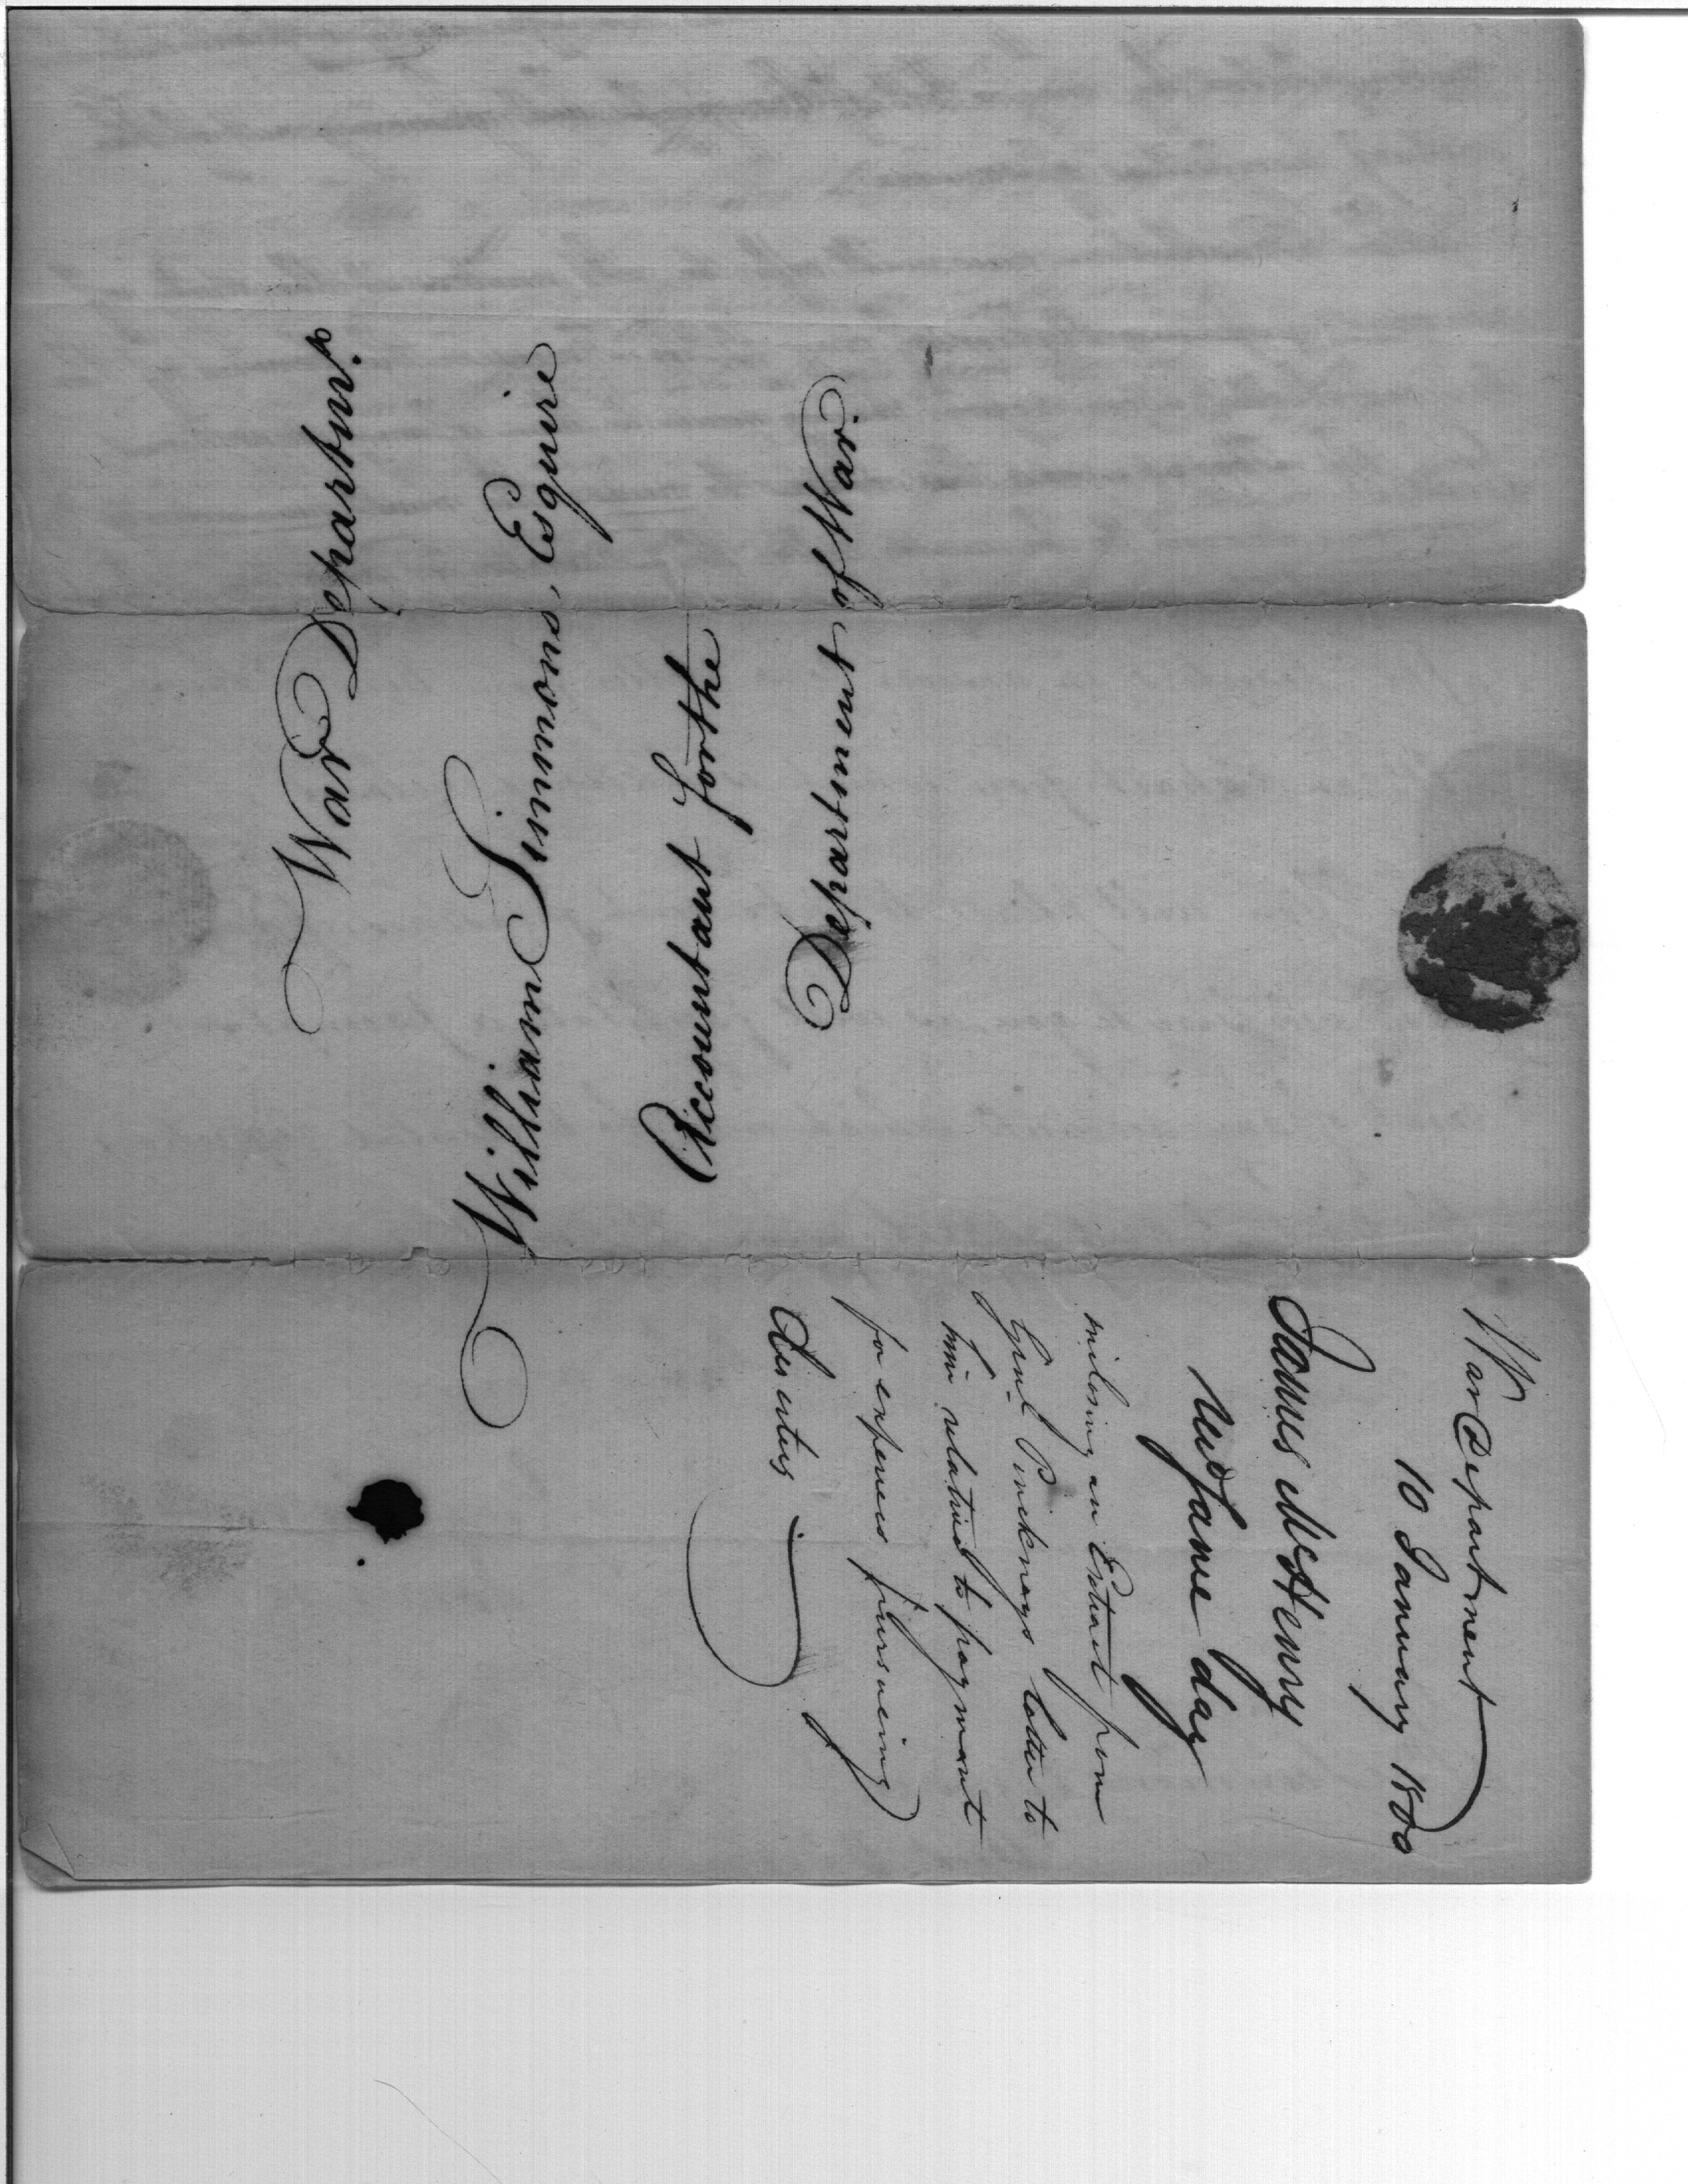 War Departmt.
William Simmons, Esquire
Accountant for the
Department of War
War Department
10 January 1800
James McHenry
recd same day
enclosing an Extract from
Genl. Pinckneys letter to
him relative to payment
for expences pursueing
deserters